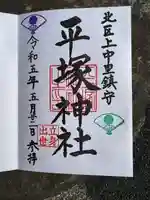 北区上中里鎮守
平塚神社
令和五年五月廿一日参拝
立身
出世